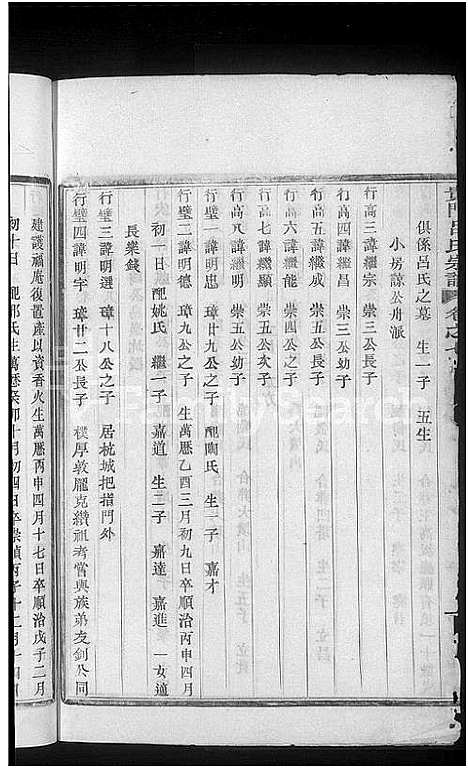 呂氏宗譜
俱係呂氏之墓 生一子 五生
小房諒公舟派
行高三諱繼宗 崇三公長子
行高四諱繼昌 崇三公幼子
行高五諱繼成 崇四公之子
行高六諱繼能 崇五公長子
行高七諱繼顯 崇五公次子
行高八諱繼明 崇五公幼子
行璧一諱明忠 璋九公長子 配陶氏 生一子 嘉才
行璧二諱明德 璋九公之子 生萬曆乙酉三月初九日卒順治丙申四月
初一日 配姚氏 繼一子 嘉道 生二子 嘉達 嘉進 一女適
長樂錢
行璧三諱明選 璋十八公之子 居杭城把指門外
行璧四諱明宇 璋廿二公長子 樸厚敦龐克纘祖考嘗與族弟友劍公同
建護福庵復置產以資香火生萬曆丙申四月十七日卒順治戊子二月
初十日 配邢氏生萬曆癸卯十月初四日卒崇禎丙子十二月十四